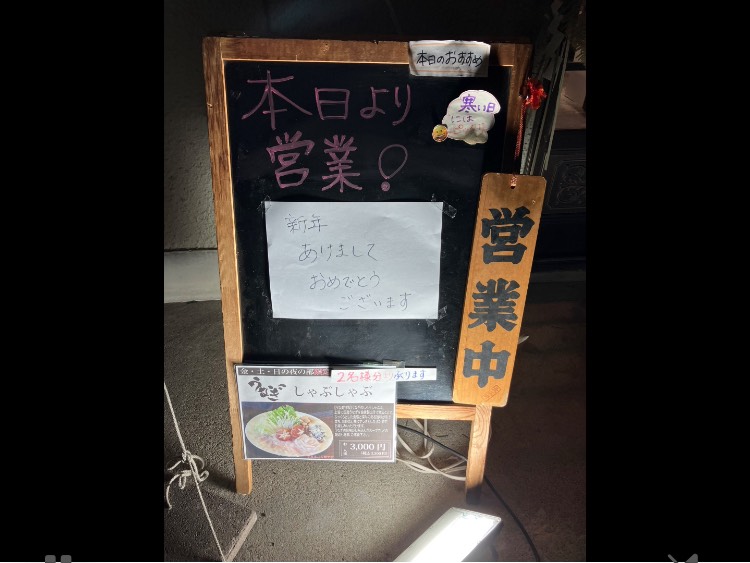 本日のおすすめ
本日より
営業!
寒い日
には
新年
あけまして
おめでとう
ございます
営業中
金・土・日の夜の部
2名様分
承ります
うなぎ
しゃぶしゃぶ
3,000円